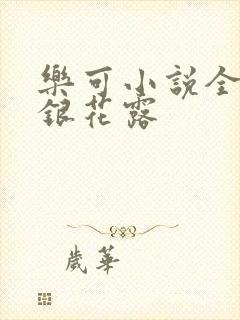 樂可小說全
銀花露
歲華